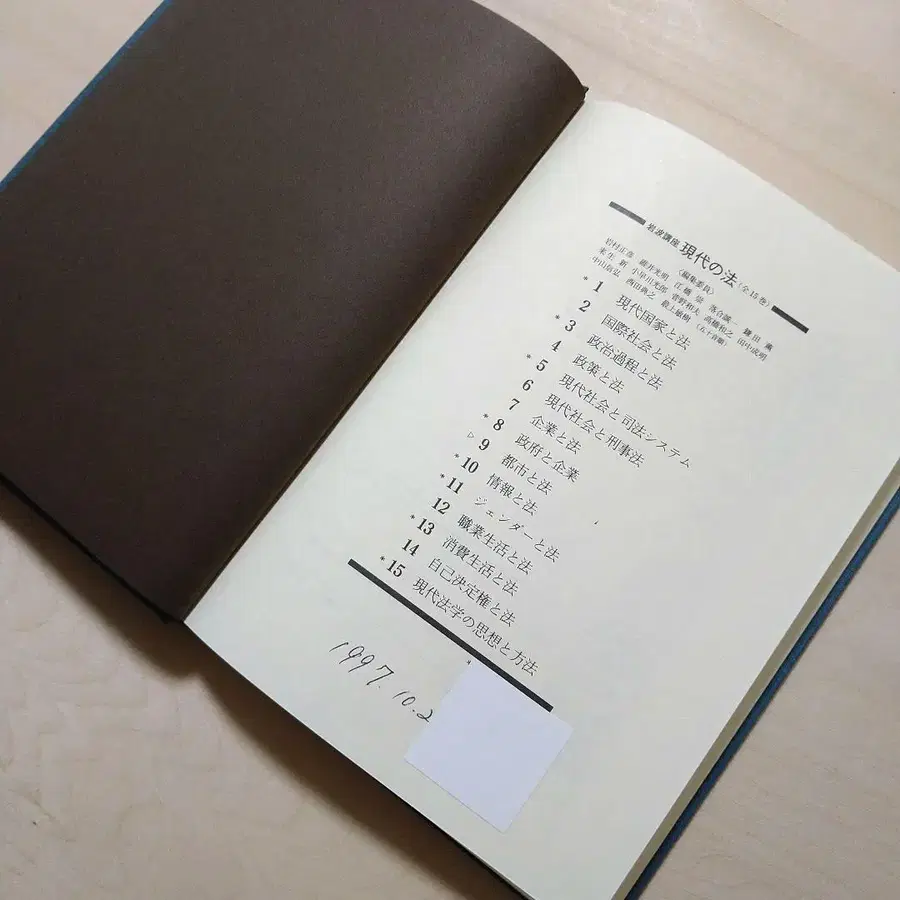 岩波講座 現代の法〈全15巻〉
〈編集委員〉
岩村正彦 碓井光明 江橋崇 落合誠一 鎌田薫
来生新 小早川光郎 菅野和夫 高橋和之 田中成明
中山信弘 西田典之 最上敏樹 (五十音順)
* 1 現代国家と法
2 国際社会と法
* 3 政治過程と法
4 政策と法
* 5 現代社会と司法システム
6 現代社会と刑事法
7 企業と法
* 8 政府と企業
▷ 9 都市と法
* 10 情報と法
* 11 ジェンダーと法
12 職業生活と法
* 13 消費生活と法
14 自己決定権と法
* 15 現代法学の思想と方法
1997.10.2